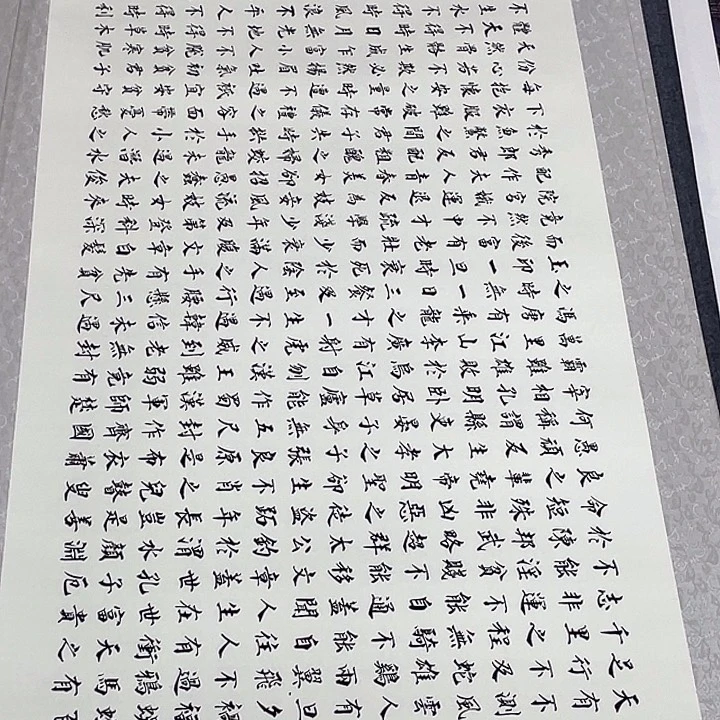 天有不測風雲人有旦夕
足行不及蛇雄雞兩翼飛不過鴉馬有
千里之程無騎不能自往人有衝天之
志非運不能自通蓋聞人生在世富貴
不能淫貧賤不能移文章蓋世孔子厄
於陳邦武略超群太公釣於渭水顏淵
命短殊非凶惡之徒盜跖年長豈是善
良之輩堯帝明聖卻生不肖之兒瞽叟
愚頑生大孝之子張良原是布衣蕭
何稱謂縣吏晏子身無五尺封作齊國
宰相孔明臥居草廬能作蜀漢軍師楚
霸雖雄敗於烏江自刎漢王雖弱竟有
萬里江山李廣有射虎之威到老無封
馮唐有乘龍之才一生不遇韓信未遇
之時無一日三餐及至遇行腰懸三尺
王印一旦衰死於陰人之手有先貧
而後富有老壯而少衰滿腹文章白髮
竟然不中才疏學淺少年及第登科深
院宮娥運退為妓風流妓女時來
配作夫人青春美女卻招愚蠢之夫俊
秀郎君反配粗醜之婦蛟龍未遇潛水
於魚鱉之間君子失時拱手於小人之
下衣服雖破常存儀禮之容面帶憂愁
每抱懷安之量時遭不遇只宜安貧守
份心若不欺必然揚眉吐氣初貧君子
天然骨骼生成乍富小人不脫貧寒肌
體天不得時日月無光地不得時草木
不生水不得時風浪不平人不得時利